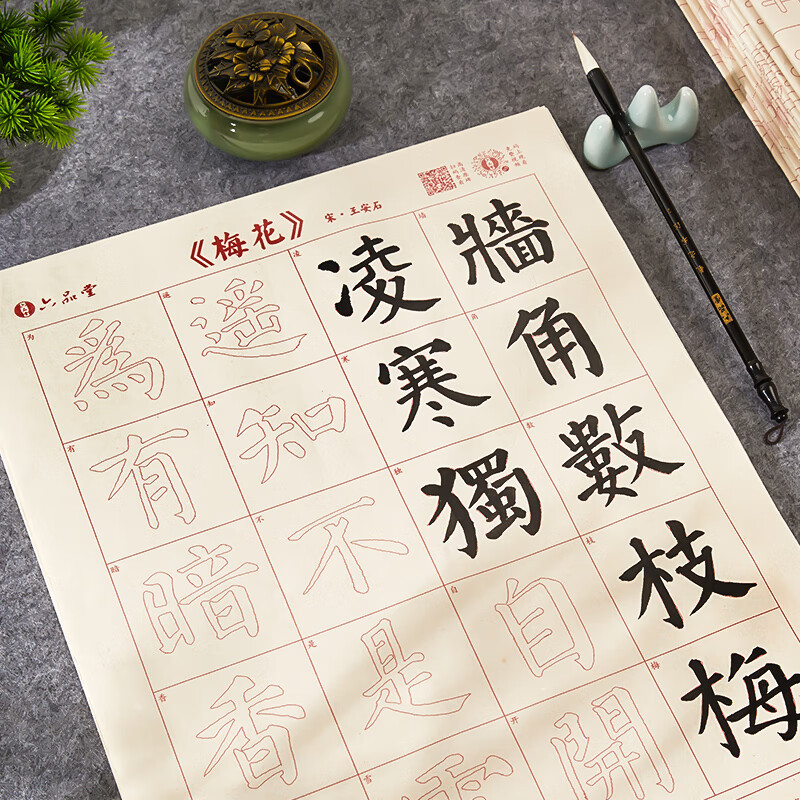 《梅花》
宋·王安石
六品堂
牆角數枝梅
凌寒獨自開
遥知不是雪
為有暗香
墙
角
数
枝
梅
凌
寒
独
自
开
遥
知
不
是
雪
为
有
暗
香